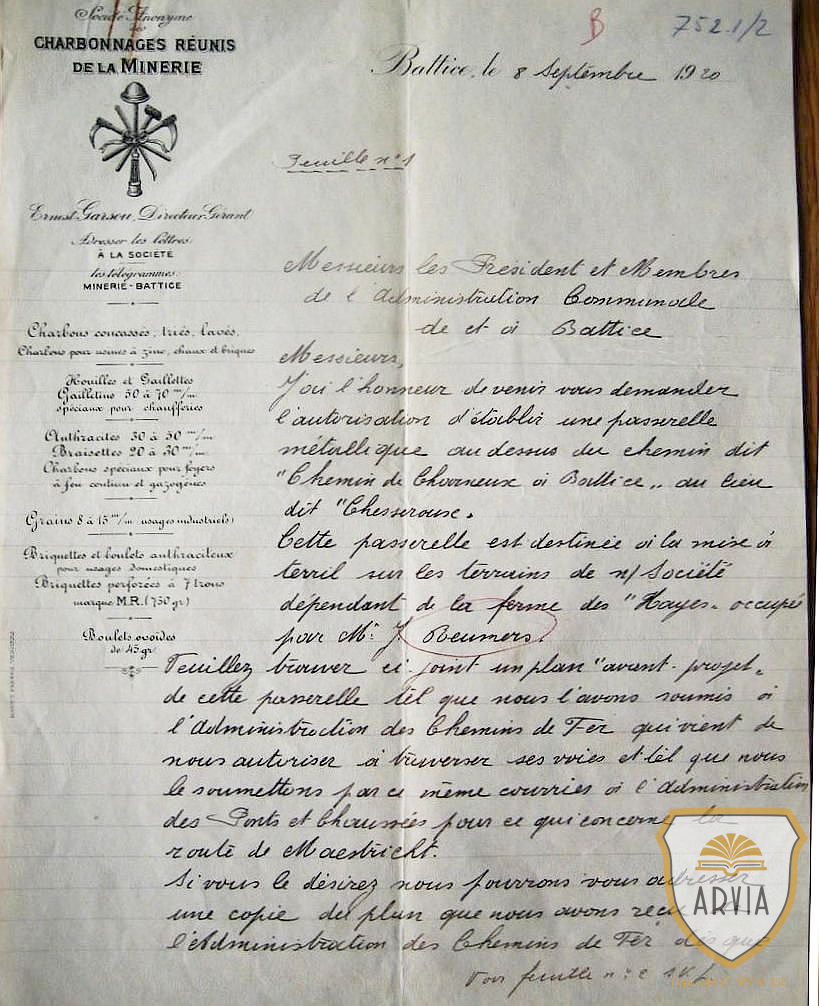 B
752.1/2
Société Anonyme
des
CHARBONNAGES RÉUNIS
DE LA MINERIE
Battice, le 8 Septembre 1920
Feuille n° 1
Ernest Garsou, Directeur-Gérant
Adresser les lettres:
A LA SOCIÉTÉ
les télégrammes:
MINERIE-BATTICE
Charbons concassés, triés, lavés.
Charbons pour usines à zinc, chaux et briques
Houilles et Gaillettes
Gailletins 50 à 70 m/m
spéciaux pour chaufferies
Anthracites 30 à 50 m/m
Braisettes 20 à 30 m/m
Charbons spéciaux pour foyers
à feu continu et gazogènes
Grains 8 à 15 m/m (usages industriels)
Briquettes et boulets anthraciteux
pour usages domestiques
Briquettes perforées à 7 trous
marque M.R. (750 gr)
Boulets ovoïdes
de 45 gr
Messieurs les Président et Membres
de l'Administration Communale
de et à Battice
Messieurs,
J'ai l'honneur de venir vous demander
l'autorisation d'établir une passerelle
métallique au dessus du chemin dit
"Chemin de Charneux à Battice" au lieu
dit "Chesseroux"
Cette passerelle est destinée à la mise à
terril sur les terrains de n/ Société
dépendant de la ferme des "Hayes" occupée
par Mr J Reumers.
Veuillez trouver ci joint un plan "avant-projet"
de cette passerelle tel que nous l'avons soumis à
l'Administration des Chemins de Fer qui vient de
nous autoriser à traverser ses voies et tel que nous
le soumettons par ce même courrier à l'Administration
des Ponts et Chaussées pour ce qui concerne la
route de Maestricht.
Si vous le désirez nous pourrons vous adresser
une copie du plan que nous avons reçu
l'Administration des Chemins de Fer dès que
Voir feuille n° 2 s.v.p.
ARVIA